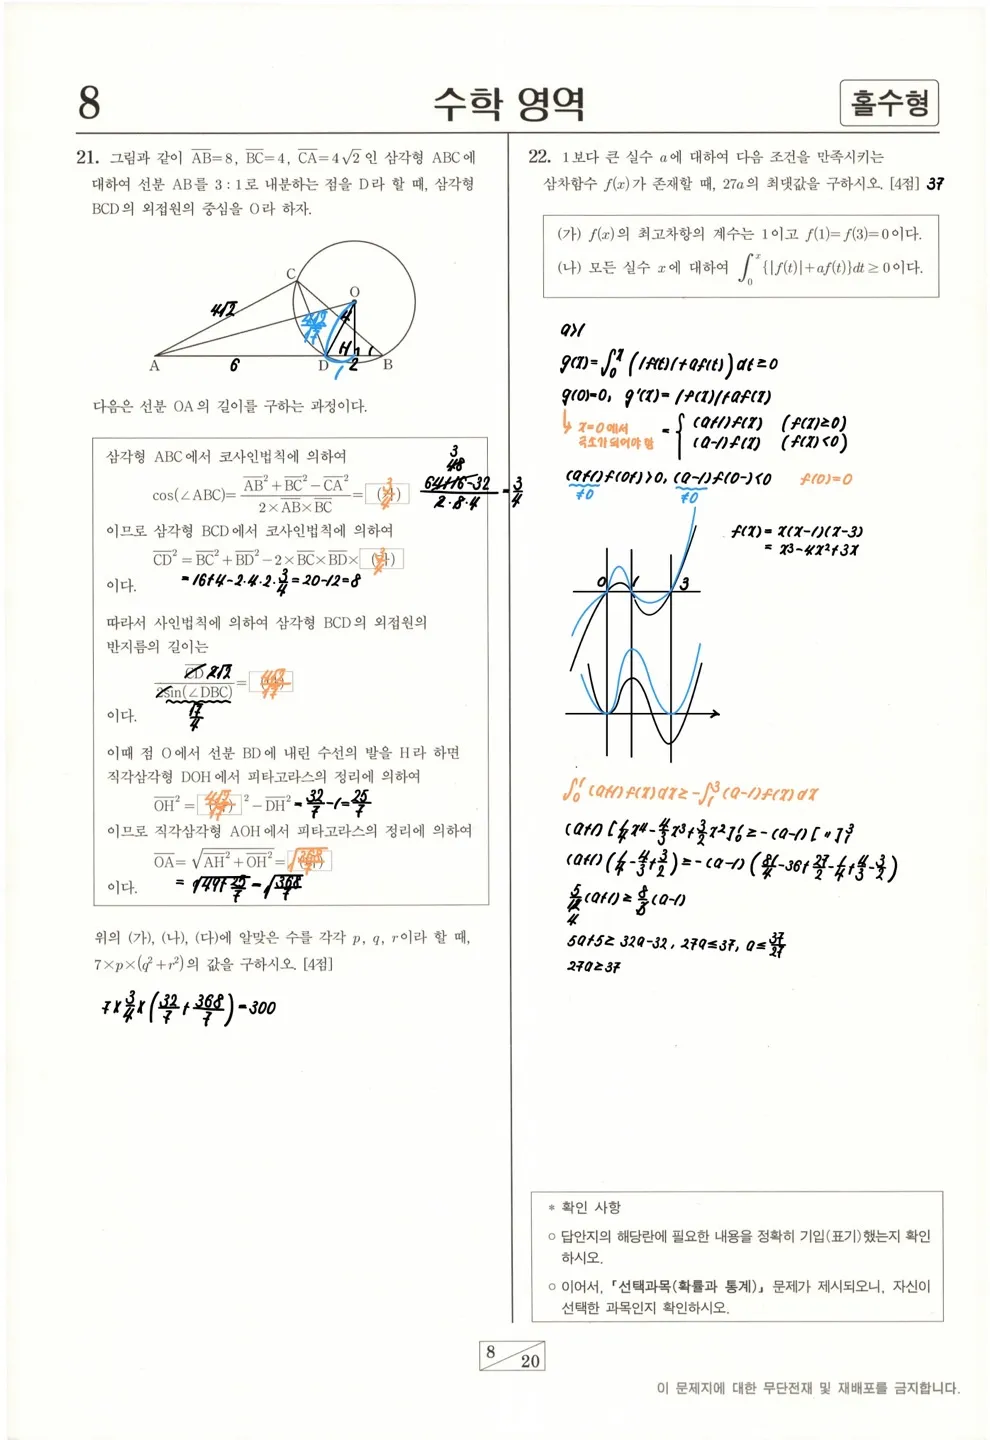 8
수학 영역
홀수형
21. 그림과 같이 AB=8, BC=4, CA=4√2 인 삼각형 ABC에
대하여 선분 AB를 3 : 1로 내분하는 점을 D라 할 때, 삼각형
BCD의 외접원의 중심을 O라 하자.
C
O
4√2
4
4√2
√7
H
1
A
6
D
2
B
1
다음은 선분 OA의 길이를 구하는 과정이다.
삼각형 ABC에서 코사인법칙에 의하여
cos(∠ABC)= (AB²+BC²-CA²)/(2×AB×BC) = (가) 3/4
3
48
(64+16-32)/(2·8·4) = 3/4
이므로 삼각형 BCD에서 코사인법칙에 의하여
CD²=BC²+BD²-2×BC×BD× (가) 3/4
이다.
=16+4-2·4·2·3/4=20-12=8
따라서 사인법칙에 의하여 삼각형 BCD의 외접원의
반지름의 길이는
CD 2√2
2sin(∠DBC)
= (나) 4√2/√7
이다.
√7/4
이때 점 O에서 선분 BD에 내린 수선의 발을 H라 하면
직각삼각형 DOH에서 피타고라스의 정리에 의하여
OH²= (나) 4√2/√7 ²-DH² = 32/7-1=25/7
이므로 직각삼각형 AOH에서 피타고라스의 정리에 의하여
OA=√(AH²+OH²)= (다) √(368/7)
이다.
=√(49+25/7)=√(368/7)
위의 (가), (나), (다)에 알맞은 수를 각각 p, q, r이라 할 때,
7×p×(q²+r²)의 값을 구하시오. [4점]
7×3/4×(32/7+368/7)=300
22. 1보다 큰 실수 a에 대하여 다음 조건을 만족시키는
삼차함수 f(x)가 존재할 때, 27a의 최댓값을 구하시오. [4점] 37
(가) f(x)의 최고차항의 계수는 1이고 f(1)=f(3)=0이다.
(나) 모든 실수 x에 대하여 ∫₀ˣ{|f(t)|+af(t)}dt≥0이다.
a>1
g(x)=∫₀ˣ(|f(t)|+af(t))dt≥0
g(0)=0, g'(x)=|f(x)|+af(x)
↳ x=0에서
극소가 되어야 함
= { (a+1)f(x) (f(x)≥0)
(a-1)f(x) (f(x)<0)
(a+1)f(0+)>0, (a-1)f(0-)<0 f(0)=0
≠0 ≠0
f(x)=x(x-1)(x-3)
=x³-4x²+3x
0 1 3
∫₀¹(a+1)f(x)dx≥-∫₁³(a-1)f(x)dx
(a+1)[1/4x⁴-4/3x³+3/2x²]₀¹≥-(a-1)[〃]₁³
(a+1)(1/4-4/3+3/2)≥-(a-1)(81/4-36+27/2-1/4+4/3-3/2)
5/12(a+1)≥8/3(a-1)
4
5a+5≥32a-32, 27a≤37, a≤37/27
27a≥37
* 확인 사항
○ 답안지의 해당란에 필요한 내용을 정확히 기입(표기)했는지 확인
하시오.
○ 이어서, 「선택과목(확률과 통계)」 문제가 제시되오니, 자신이
선택한 과목인지 확인하시오.
8
20
이 문제지에 대한 무단전재 및 재배포를 금지합니다.